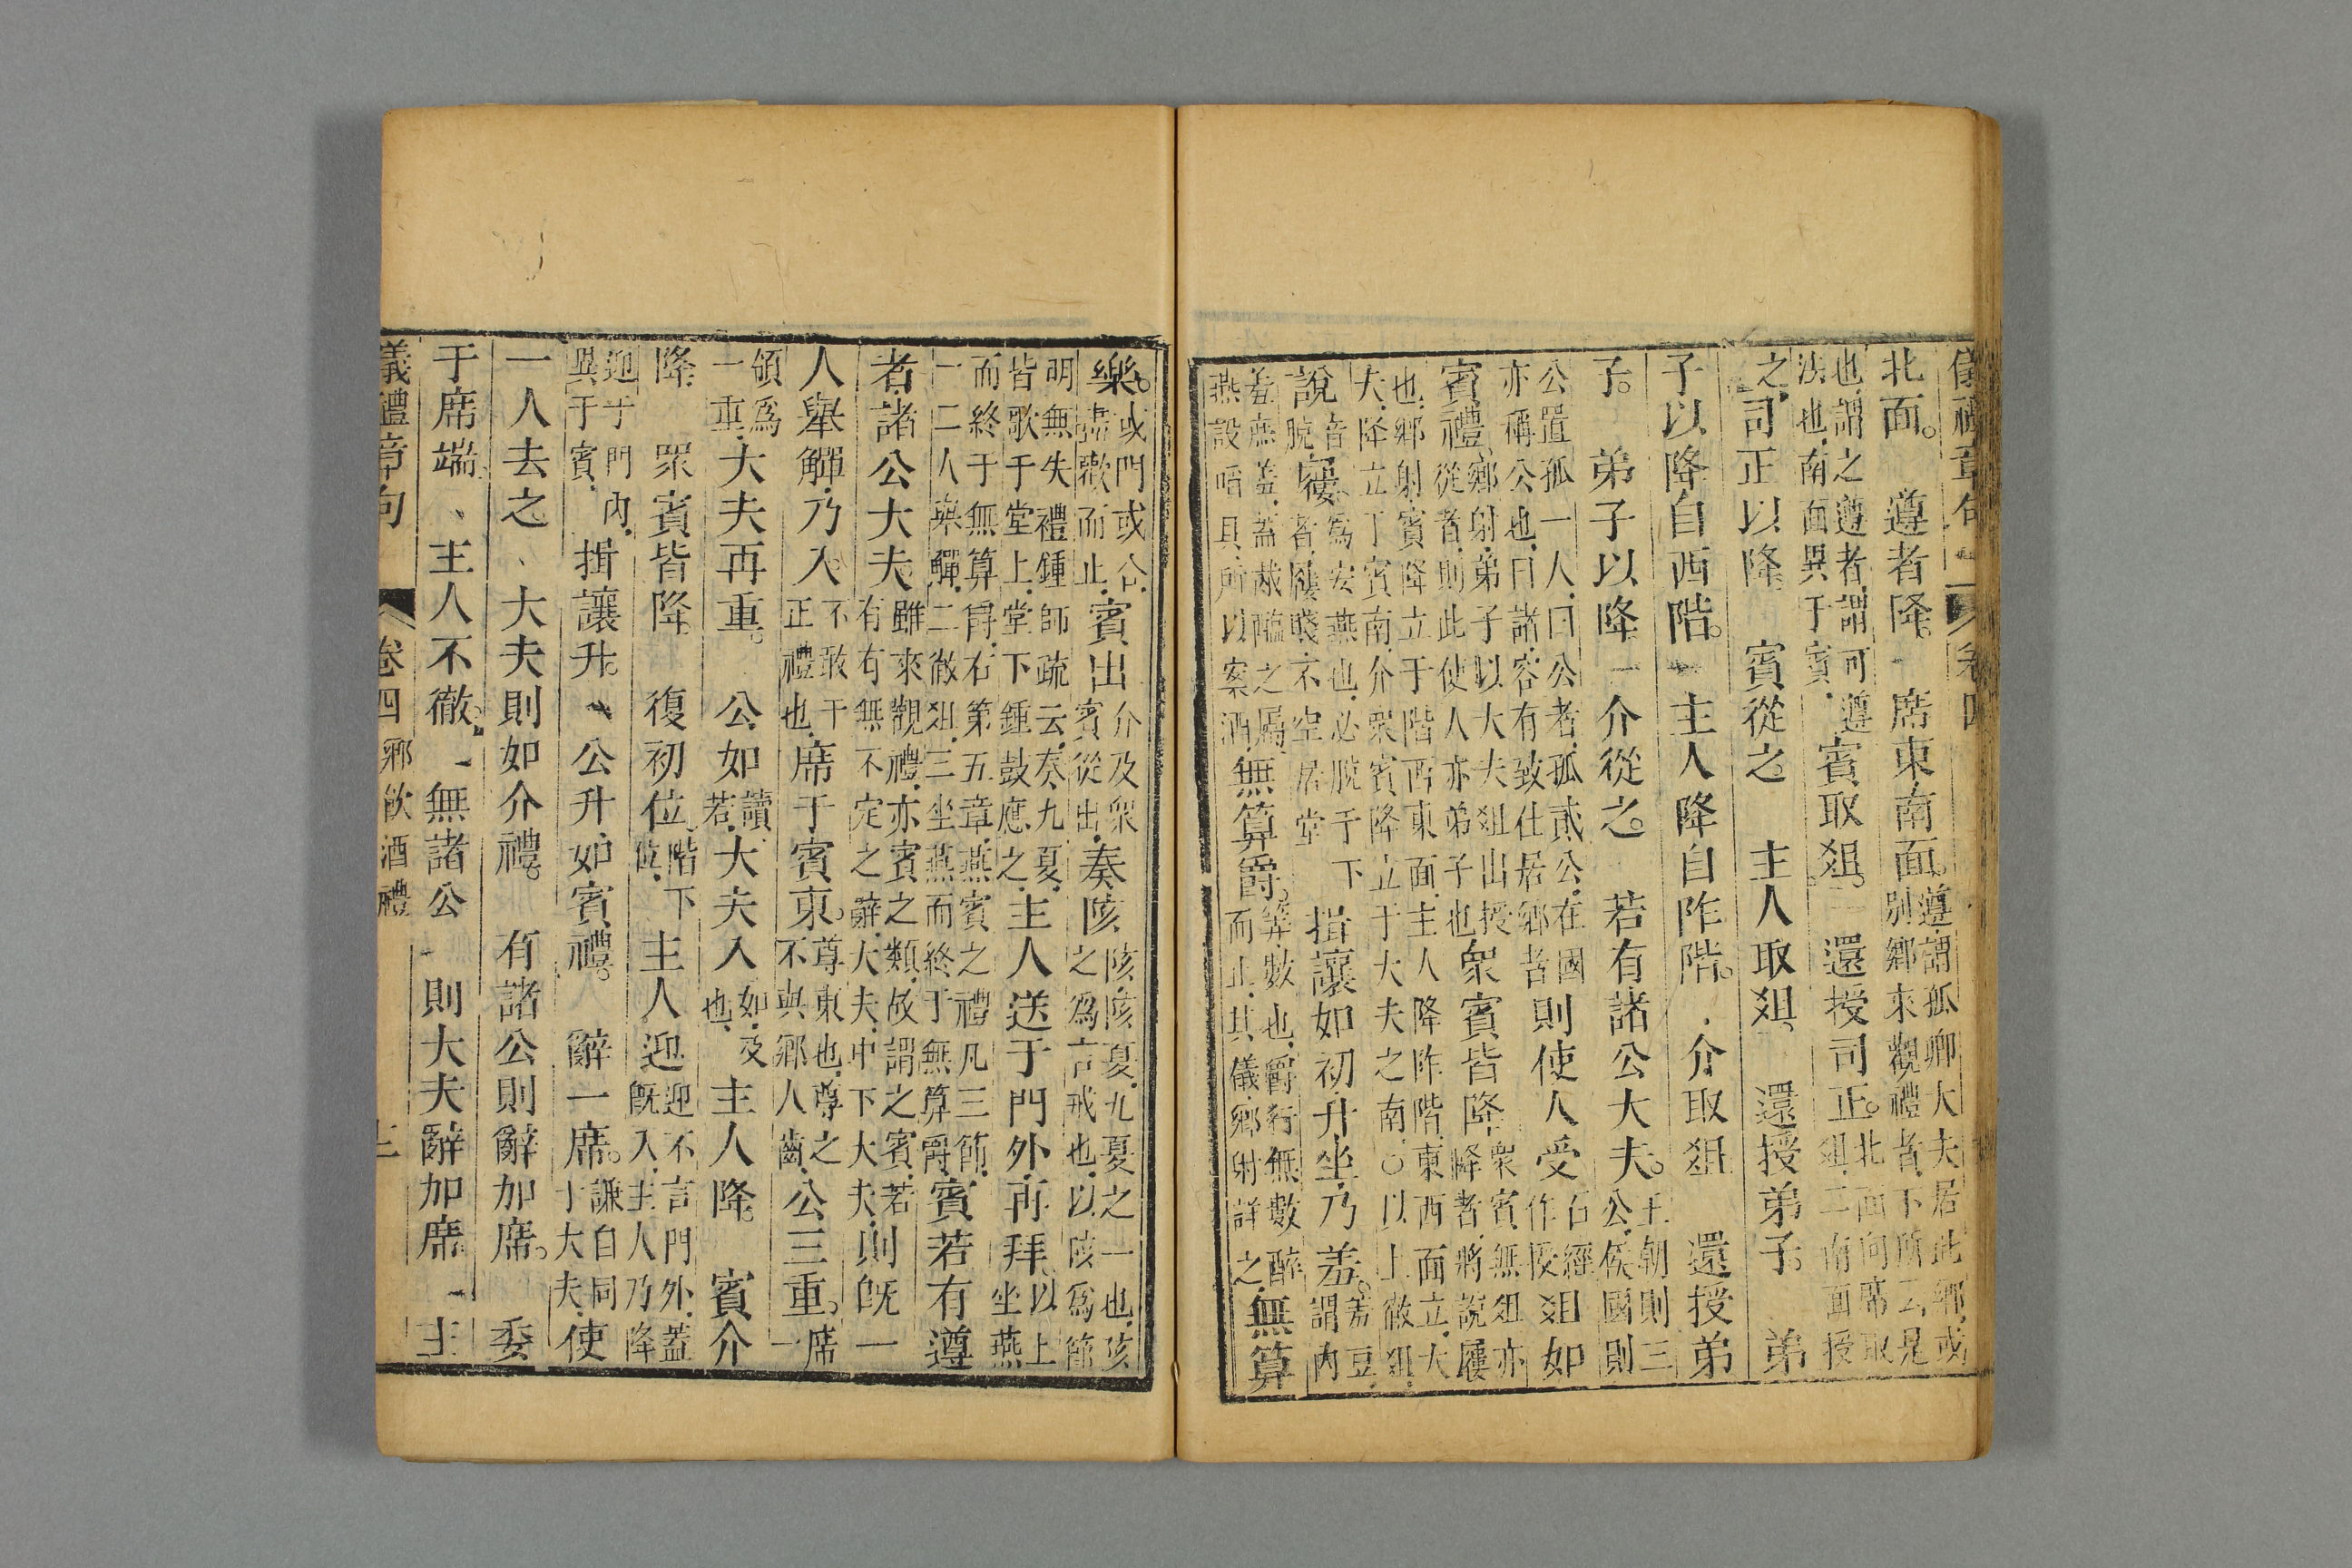 儀禮章句 卷四
北面。遵者降。席東南面。遵謂孤卿大夫居此鄉或別鄉來觀禮者下所云是
也謂之遵者謂可遵法也南面異于賓賓取俎。還授司正。北面向席取俎二南面授
之司正以降。賓從之。主人取俎。還授弟子。弟
子以降自西階。主人降自阼階。介取俎還授弟
子。弟子以降。介從之。若有諸公大夫。王朝則三公侯國則
公置孤一人曰公者孤貳公在國亦稱公也曰諸容有致仕居鄉者則使人受俎如石經作降
賓禮鄉射弟子以大夫俎出授從者則此使人亦弟子也眾賓皆降眾賓無俎亦降者將說屨
也鄉射賓降立于階西東面主人降阼階東西面立大夫降立丁賓南介眾賓降立于大夫之南○以上徹俎
說音脫屨為安燕也必脫于下者屨賤不空居堂揖讓如初升坐乃羞。羞豆謂內
羞庶羞蓋胾醢之屬燕設啗具所以案酒無算爵。算數也爵行無數醉而止其儀鄉射詳之無算
樂。或閒或合盡歡而止賓出介及眾賓從出奏陔陔陔夏九夏之一也陔之為言戒也以陔為節
明無失禮鍾師疏云奏九夏皆歌于堂上堂下鍾鼓應之主人送于門外再拜以上坐燕
而終于無算爵右第五章燕賓之禮凡三節一二人舉觶二徹俎三坐燕而終于無算爵賓若有遵
者諸公大夫雖來觀禮亦賓之類故謂之賓若有有無不定之辭大夫中下大夫則既一
人舉觶乃入不敢干正禮也席于賓東。尊東也尊之不與鄉人齒公三重。席一
領為一重大夫再重。公如讀若大夫入如及也主人降。賓介
降眾賓皆降。復初位階下位主人迎迎不言門外蓋既入主人乃降
迎于門內異于賓揖讓升。公升如賓禮。辭一席。謙自同于大夫使
一人去之大夫則如介禮。有諸公則辭加席。委
于席端主人不徹無諸公則大夫辭加席主
儀禮章句 卷四 鄉飲酒禮